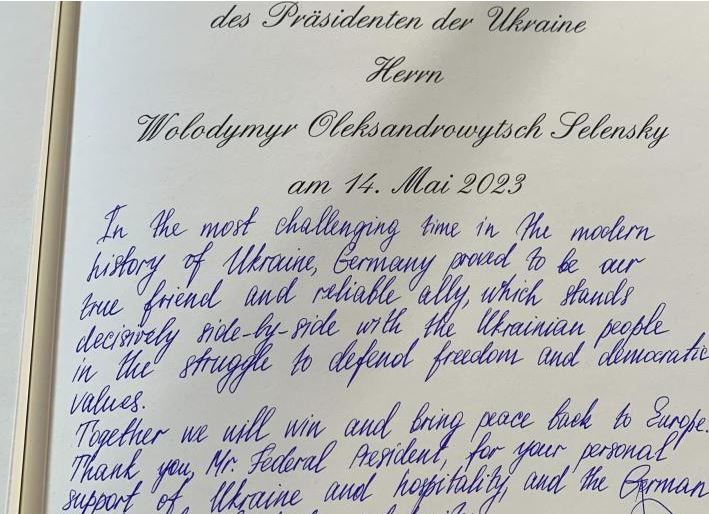 des Präsidenten der Ukraine
Herrn
Wolodymyr Oleksandrowytsch Selensky
am 14. Mai 2023
In the most challenging time in the modern
history of Ukraine, Germany proved to be our
true friend and reliable ally, which stands
decisively side-by-side with the Ukrainian people
in the struggle to defend freedom and democratic
values.
Together we will win and bring peace back to Europe.
Thank you, Mr. Federal President, for your personal
support of Ukraine and hospitality, and the German